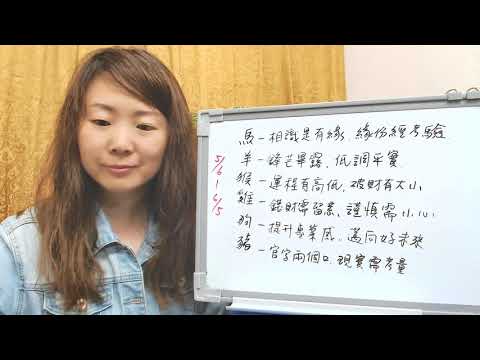 馬－相識是有緣，緣份經考驗
羊－鋒芒畢露，低調平實
猴－運程有高低，破財有大小
雞－錢財需留素，謹慎需小心
狗－提升專業感，邁向好未來
豬－官字兩個口，現實需考量
5/6
1
4/5